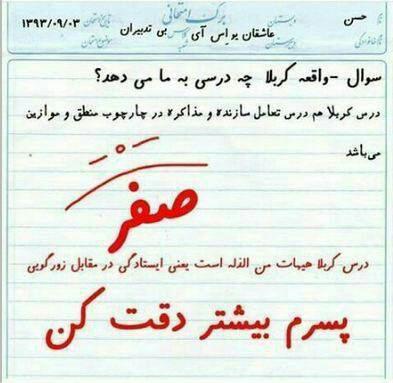 نام حسن دبستان برگ امتحانی تاریخ امتحان ۱۳۹۳/۰۹/۰۳
نام خانوادگی دبیرستان عاشقان یو اس آی کلاس شعبه بی تدبیران موضوع امتحان
سوال -واقعه کربلا چه درسی به ما می دهد؟
درس کربلا هم درس تعامل سازنده و مذاکره در چارچوب منطق و موازین
می‌باشد
صفر
درس کربلا هیهات من الذله است یعنی ایستادگی در مقابل زورگویی
پسرم بیشتر دقت کن